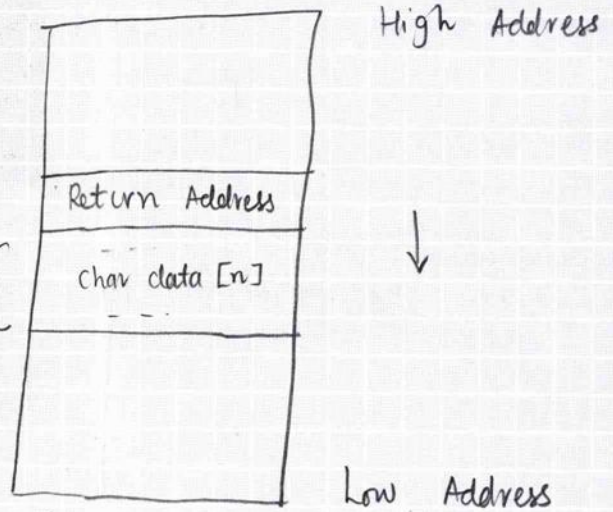 High Address
Return Address
char data [n]
Low Address